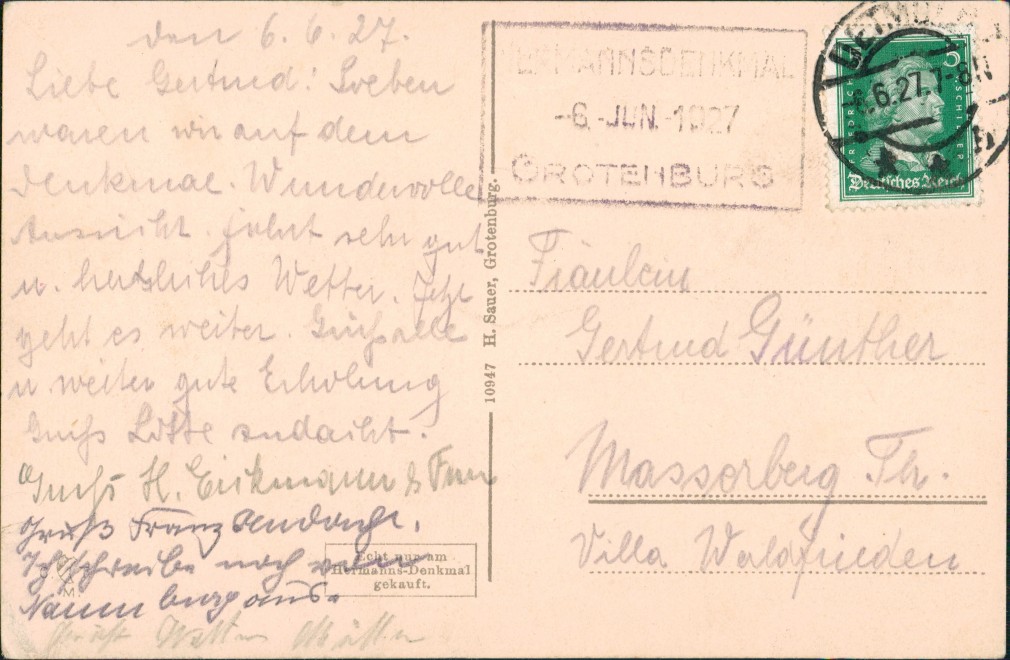 den 6.6.27.
Liebe Gertrud! Soeben
waren wir auf dem
Denkmal. Wundervolle
Aussicht. Fahrt sehr gut
u. herrliches Wetter. Jetzt
geht es weiter. Grüß alle
u. weiter gute Erholung
Gruß Lotte Andacht.
Gruß H. Eickmann & Frau
Gruß Franz Andacht.
Ich schreibe noch von
Naumburg aus.
Gruß Walter
HERMANNSDENKMAL
-6.-JUN.-1927
GROTENBURG
DETMOLD
6.6.27.7-8N
FRIEDRICH SCHILLER
5
Deutsches Reich
10947 H. Sauer, Grotenburg.
Fräulein
Gertrud Günther
Masserberg Th.
Villa Waldfrieden
Echt nur am
Hermanns-Denkmal
gekauft.